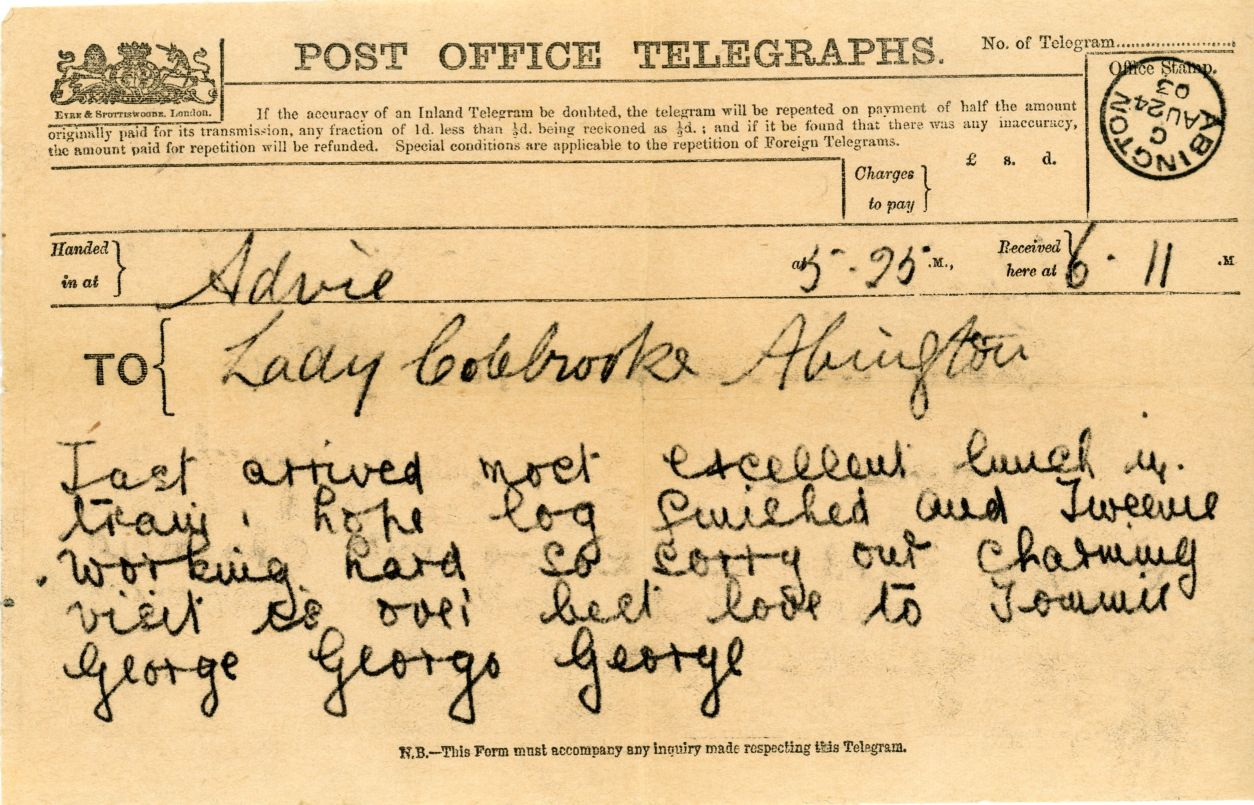 POST OFFICE TELEGRAPHS.
No. of Telegram
Office Stamp.
ABINGTON
C
AU 24
03
EYRE & SPOTTISWOODE, London.
If the accuracy of an Inland Telegram be doubted, the telegram will be repeated on payment of half the amount
originally paid for its transmission, any fraction of 1d. less than ½d. being reckoned as ½d.; and if it be found that there was any inaccuracy,
the amount paid for repetition will be refunded. Special conditions are applicable to the repetition of Foreign Telegrams.
£ s. d.
Charges
to pay }
Handed
in at } Advie at 5.25 .M., Received
here at } 6.11 .M
TO { Lady Colebrooke Abington
Just arrived most excellent lunch in
train hope log finished and Tweenie
working hard so sorry our charming
visit is over best love to Tommie
George George George
N.B.—This Form must accompany any inquiry made respecting this Telegram.